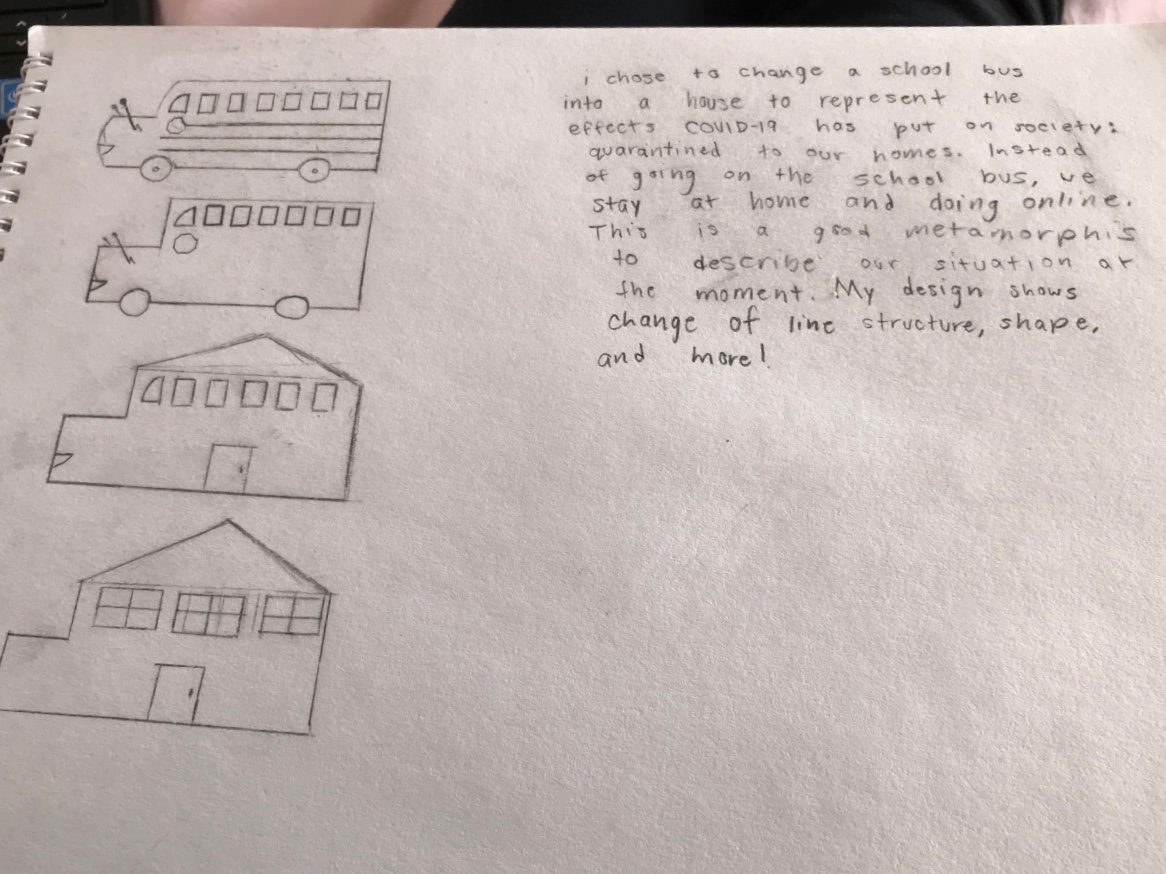 i chose to change a school bus
into a house to represent the
effects COVID-19 has put on society:
quarantined to our homes. Instead
of going on the school bus, we
stay at home and doing online.
This is a good metamorphis
to describe our situation at
the moment. My design shows
change of line structure, shape,
and more!